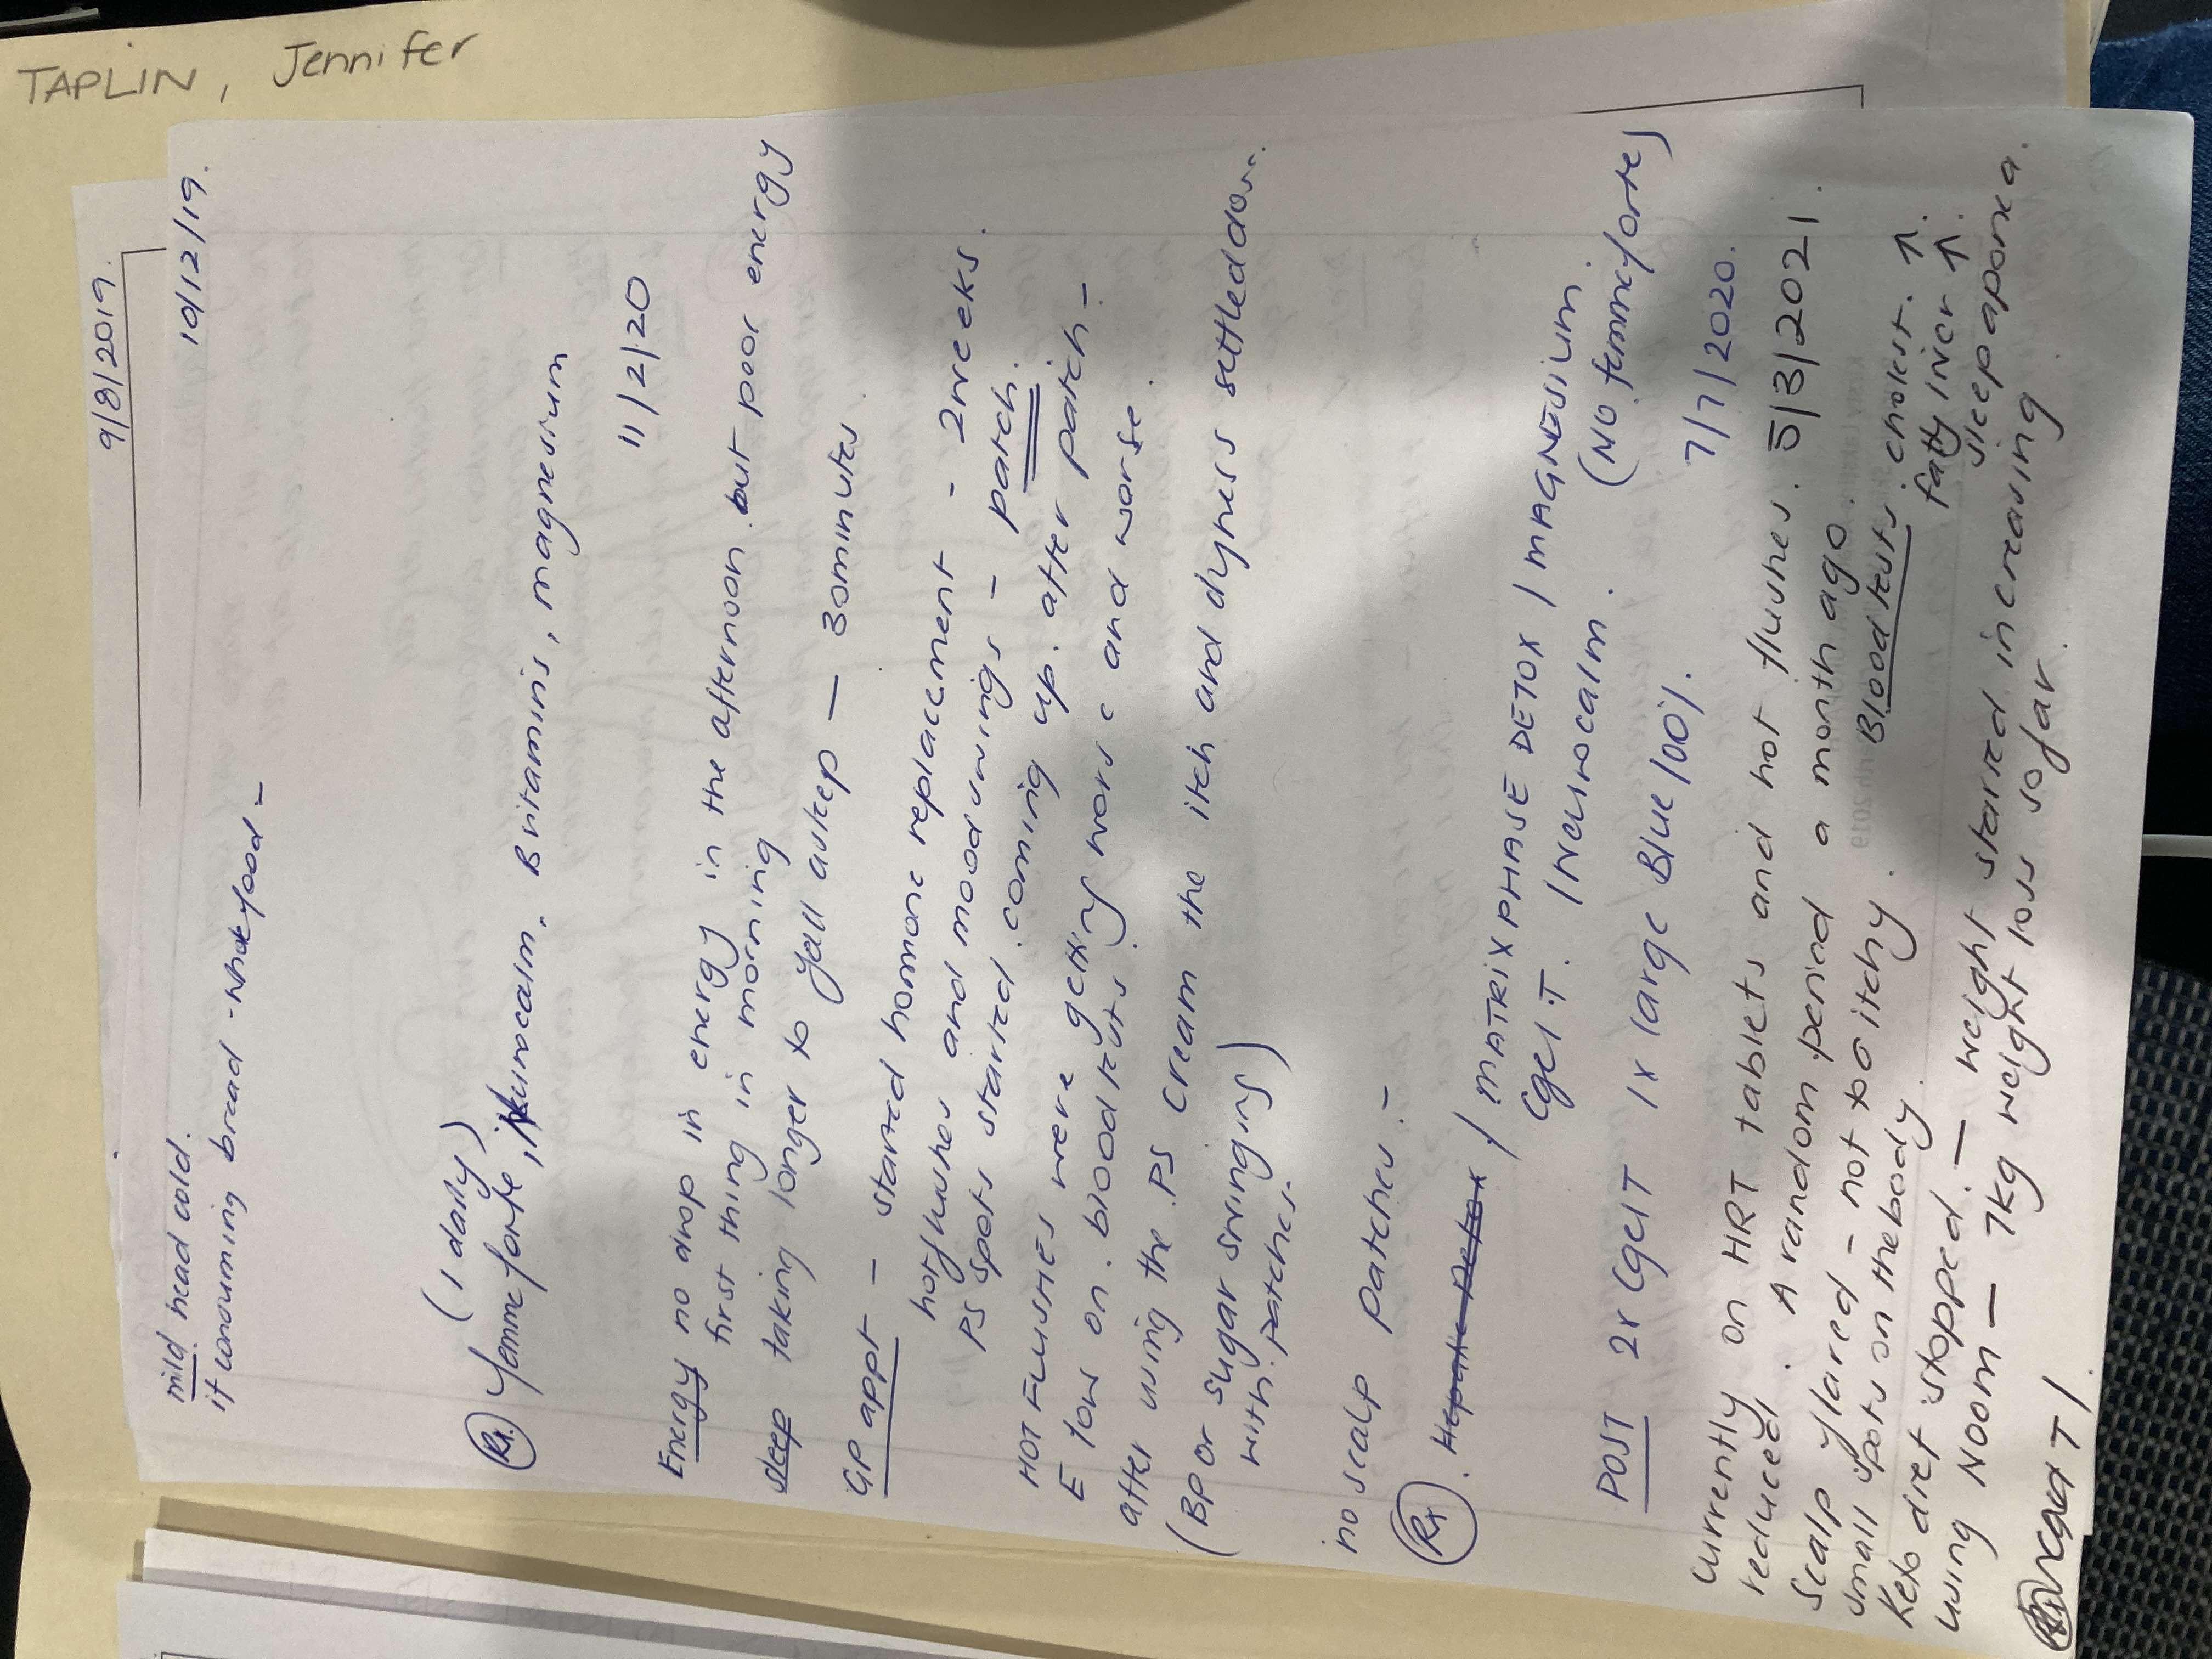 TAPLIN, Jennifer
9/8/2019.
10/12/19.
mild head cold.
if consuming bread - whole food -
(1 daily)
Rx. femme forte, neurocalm. B vitamins, magnesium
11/2/20
Energy no drop in energy in the afternoon but poor energy
first thing in morning
sleep taking longer to fall asleep — 30 minutes.
GP appt - started homone replacement - 2 weeks.
hotflushes and mood swings - patch.
PS spots started coming up. after patch -
HOT FLUSHES were getting worse and worse.
E low on. blood tests.
after using the PS cream the itch and dryness settled down.
(BP or sugar swinging)
with patches.
no scalp patches. -
Rx. Hepatic Detox / MATRIX PHASE DETOX / MAGNESIUM.
CgelT. / Neurocalm. (NO femmeforte)
POST 2x CgelT 1x large Blue 100%. 7/7/2020.
5/3/2021.
currently on HRT tablets and hot flushes
reduced. A random period a month ago.
Scalp flared - not too itchy. Blood tests. cholest. ↑.
small spots on the body. fatty liver ↑.
Keto diet stopped. — weight started increasing sleep aponea.
using NOOM — 7kg weight loss so far.
Rx CgelT /.